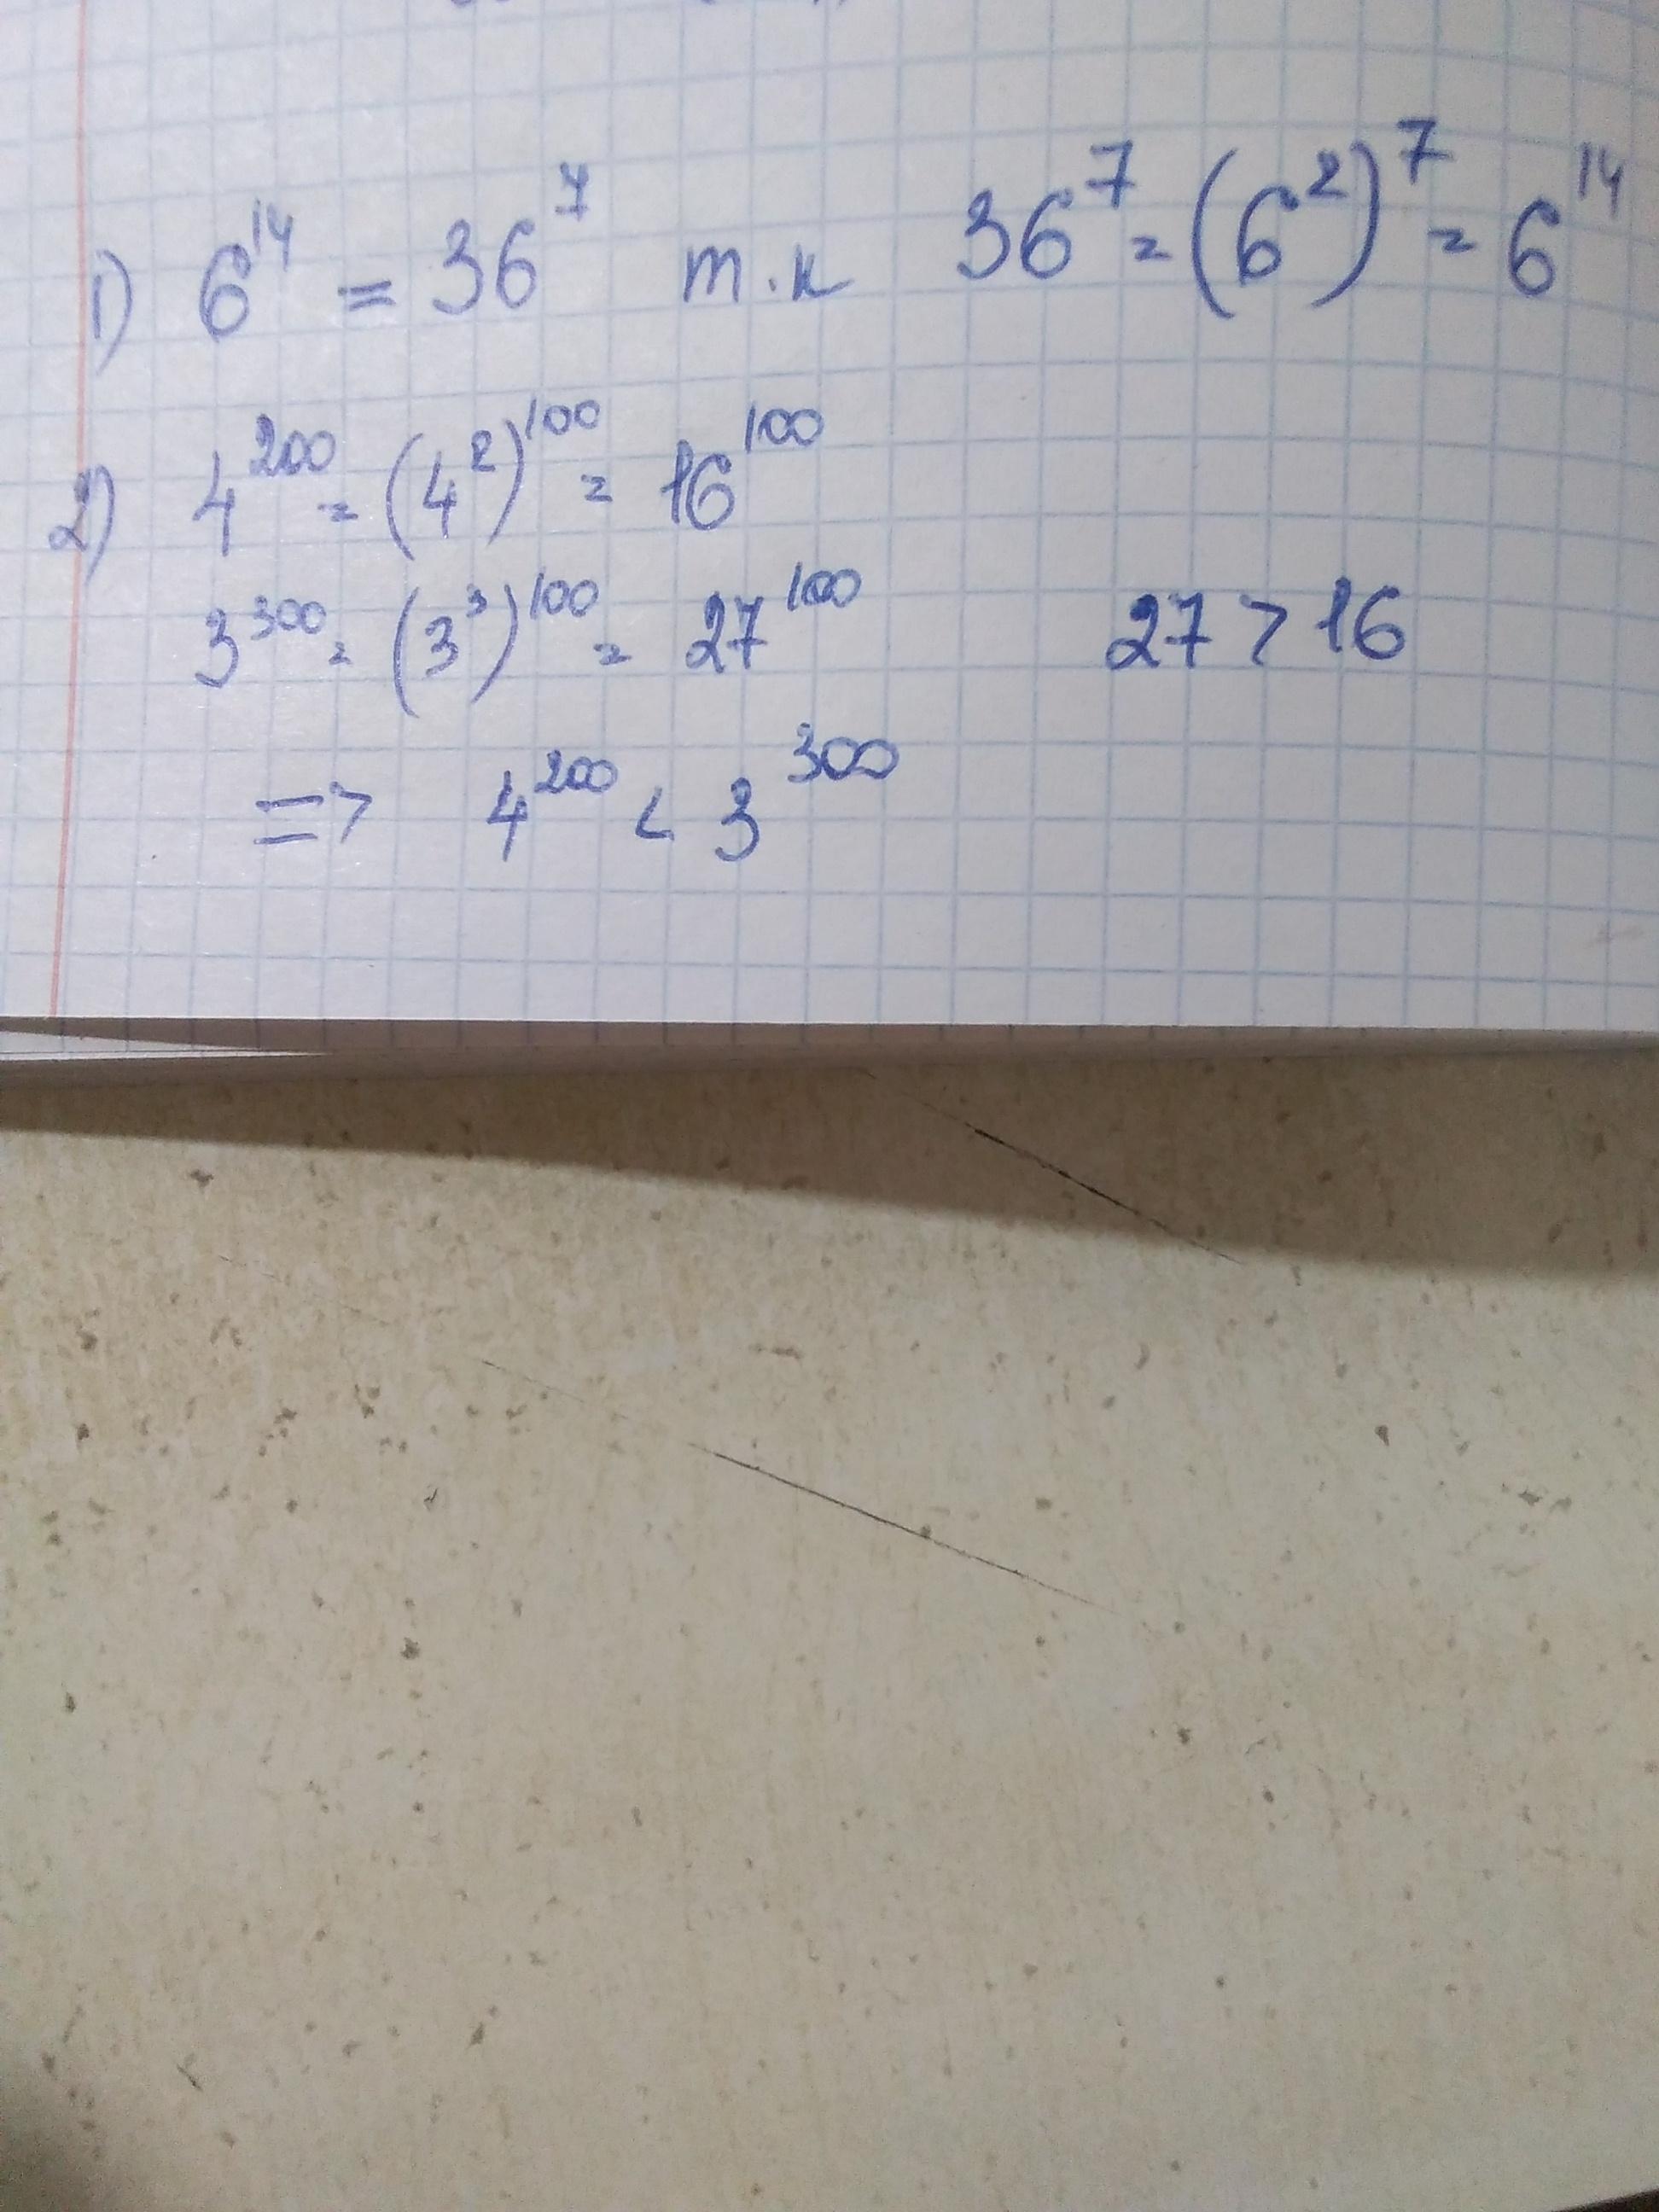 1) 6^14 = 36^7 т.к 36^7 = (6^2)^7 = 6^14
2) 4^200 = (4^2)^100 = 16^100
3^300 = (3^3)^100 = 27^100 27 > 16
=> 4^200 < 3^300